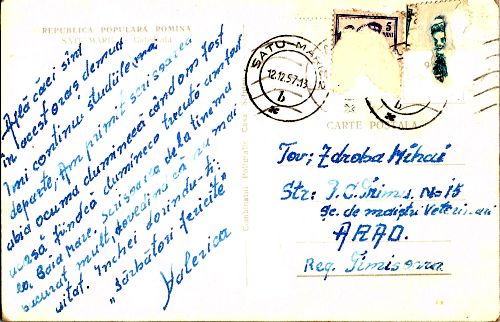 REPUBLICA POPULARA ROMINA
SATU MARE
Află căci sînt
în acest oraș de mult
îmi continui studiile mai
departe, Am primit scrisoarea
abia acuma duminecă când am fost
acasă fiindcă dumineca trecută am fost
la Baia Mare, scrisoarea de la tine m-a
bucurat mult, dovedind că nu m-ai
uitat. Închei dorindu-ți:
"Sărbători fericite"
Valerica
Combinatul Poligrafic Casa
SATU-MARE 2
12.12.57.13
b
5
b
CARTE POSTALA
Tov; Zdroba Mihai
Str: I. C. Frimu No 15
Șc. de maiștri Veterinari
ARAD.
Reg. Timisoara